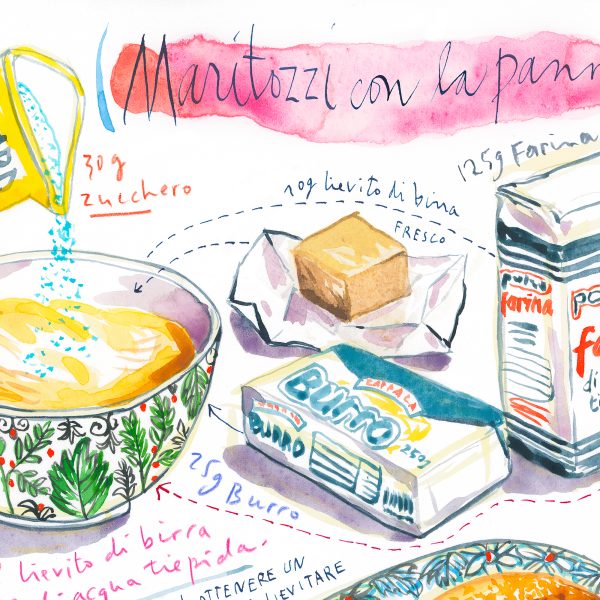 Maritozzi con la pann
30g
zucchero
10g lievito di birra
FRESCO
125g Farina
BURRO
ZAPPALÀ
BURRO
250g
farina
di
25g Burro
lievito di birra
acqua tiepida.
OTTENERE UN
LIEVITARE